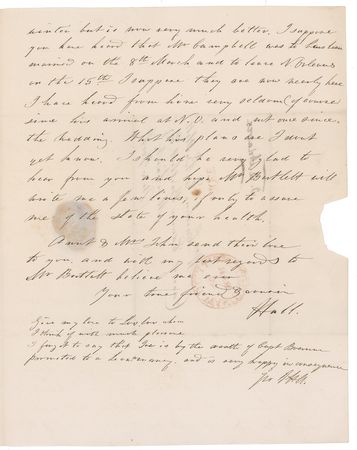 winter but is now very much better. I suppose
you have heard that Mr Campbell was to have been
married on the 8th March and to leave N Orleans
on the 15th I suppose they are now nearly here
I have heard from him very seldom (of course
since his arrival at N.O. and not once since
the wedding. What his plans are I dont
yet know. I should be very glad to
hear from you and hope Mr Bartlett will
write me a few lines, if only to assure
me of the state of your health.
Aunt & Mrs John send their love
to you, and with my best regards to
Mr Bartlett believe me ever
Your true friend & cousin
Hall.
Give my love to when
I think of with much pleasure
I forgot to say that is by the death of Capt
promoted to a Lieutenancy, and is very happy in consequence